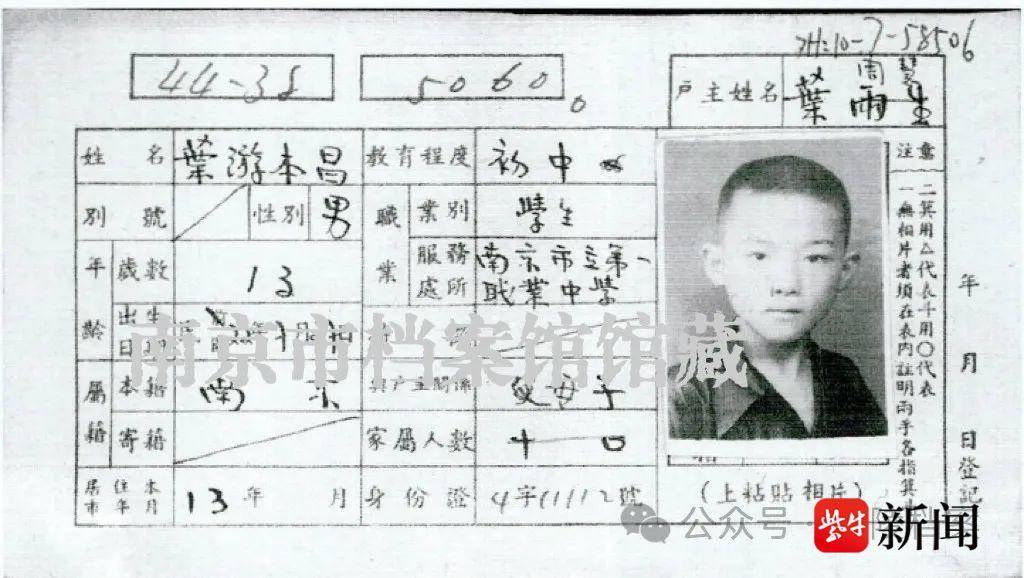 44-38
5060。
7-58506
户主姓名
葉雨生
姓名 葉游本昌 教育程度 初中
別號 性別 男 職業 業別 學生
年齡 歲數 13 服務處所 南京市立第一職業中學
出生日期
屬籍 本籍 南京 與户主關係
寄籍 家屬人數 十口
居住本市年月 13年 月 身份證 4字11112號
(上粘貼相片)
注意
一無相片者須在表內註明兩手各指箕
二箕用△代表斗用〇代表
年月日登記
南京市档案馆馆藏
公众号
紫牛新闻